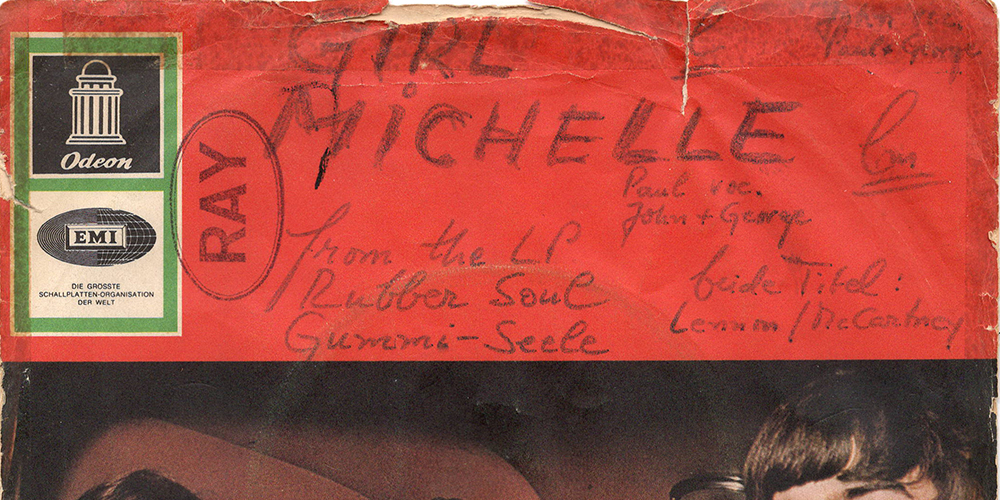 GIRL
John voc.
Paul + George
MICHELLE
Paul voc.
John + George
from the LP
Rubber Soul
Gummi-Seele
beide Titel:
Lennon/McCartney
Odeon
EMI
DIE GROSSTE
SCHALLPLATTEN-ORGANISATION
DER WELT
RAY